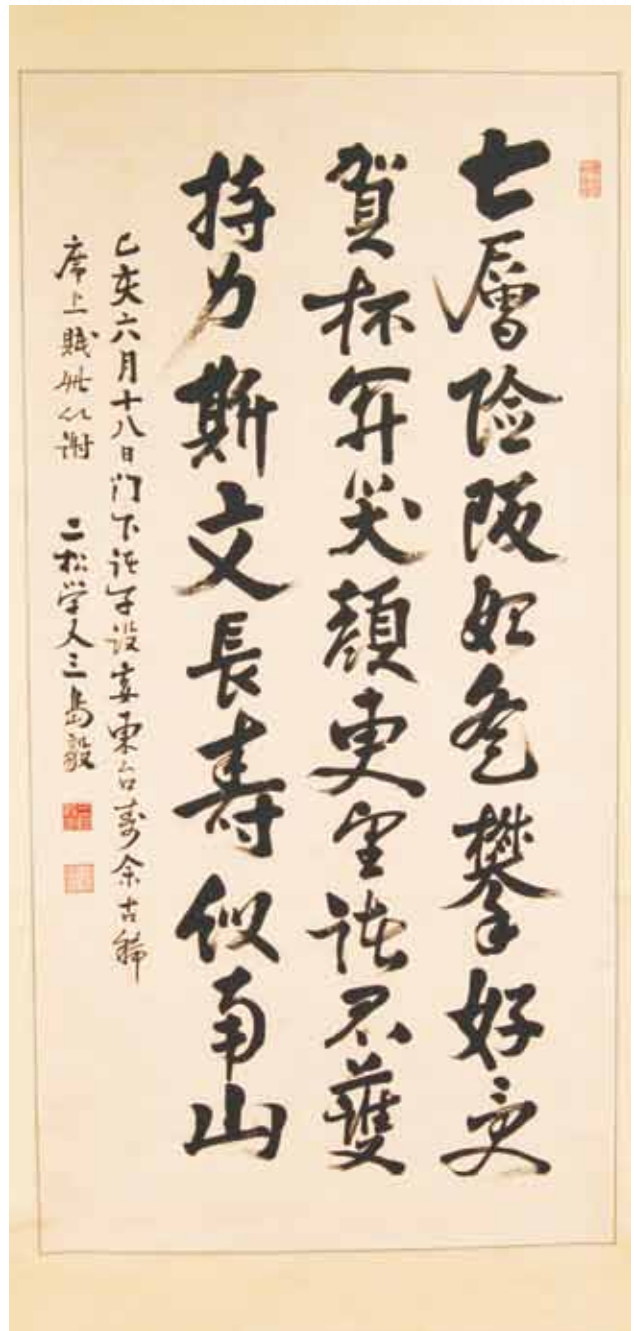 七層險阪始登攀好受
賀杯開笑顔更望諸君護
持力斯文長壽似南山
己亥六月十八日門下諸子設宴東台壽余古稀
席上賦此以謝　二松学人三島毅